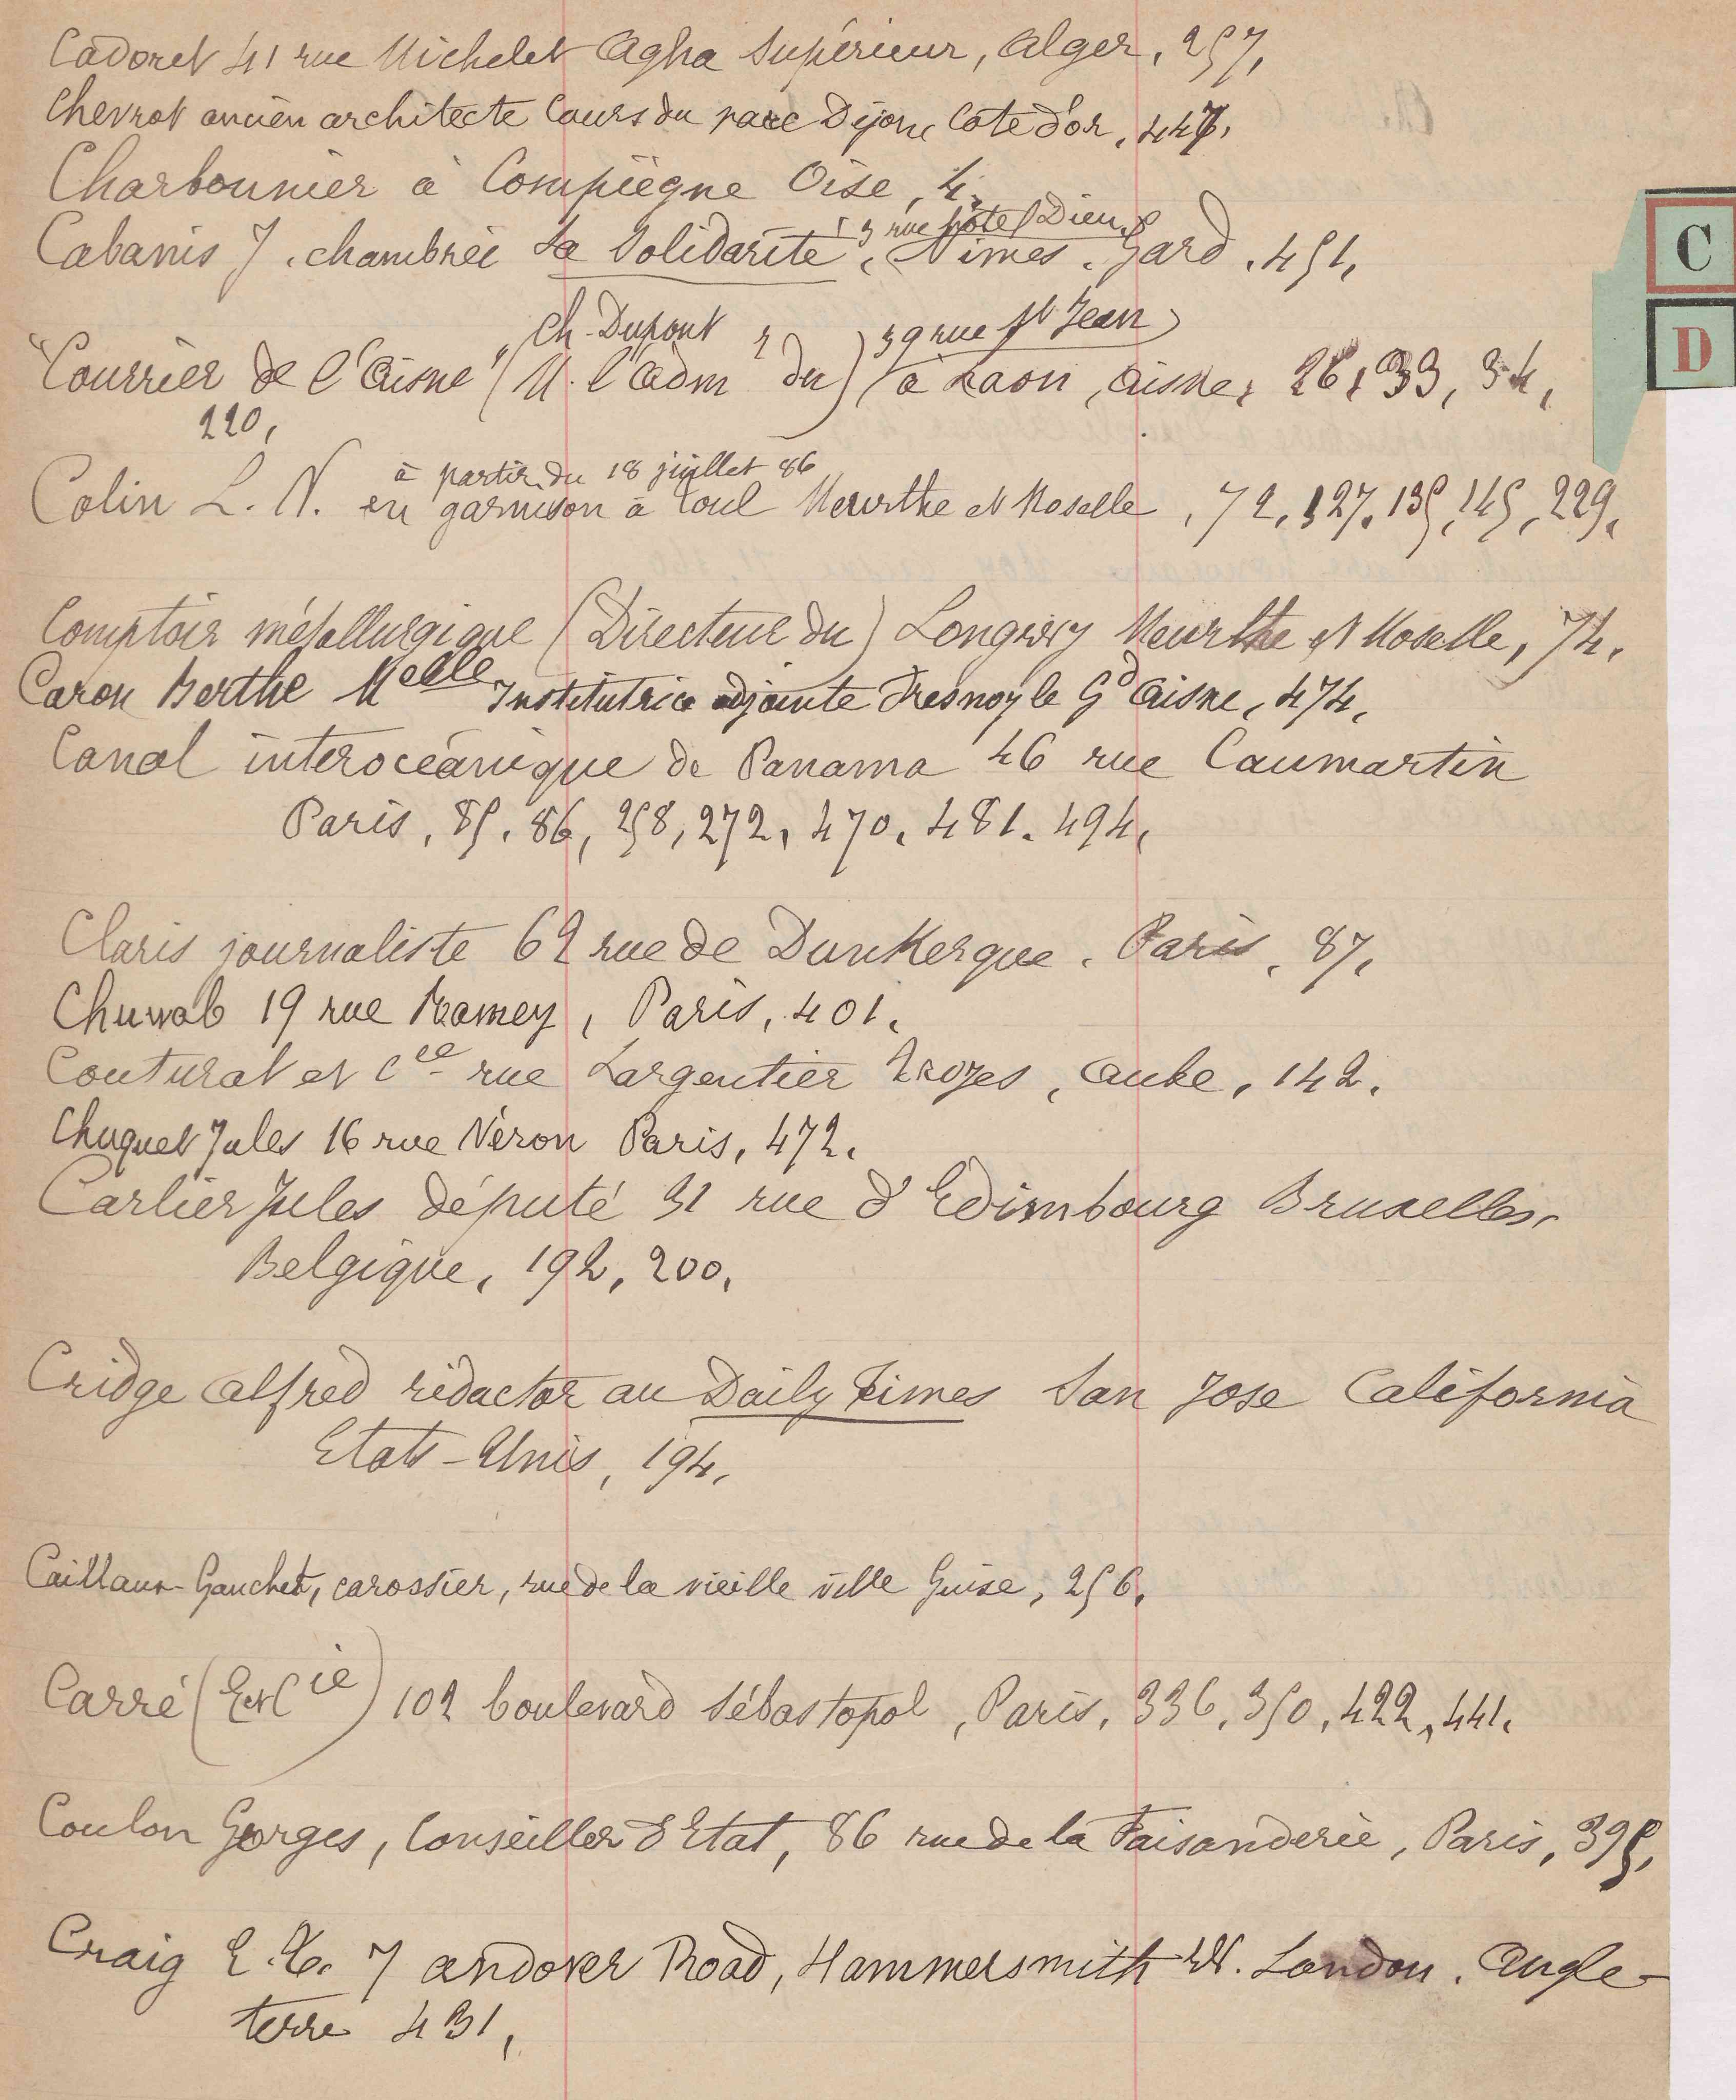 Cadoret 41 rue Michelet Agha Supérieur, Alger, 257,
Chevrot ancien architecte Cours du parc Dijon, Côte d'or, 447,
Charbonnier à Compiègne Oise, 4,
3 rue hôtel Dieu
Cabanis J. chambrée La Solidarité, Nîmes. Gard, 451,
Ch. Dupont 39 rue St Jean
"Courrier de l'Aisne" (M. l'Adm r du) à Laon, Aisne, 26, 33, 34,
220,
à partir du 18 juillet 86
Colin L. N. en garnison à Toul Meurthe et Moselle, 72, 127, 135, 145, 229,
Comptoir métallurgique (Directeur du) Longwy Meurthe et Moselle, 74,
Caron Berthe Melle Institutrice adjointe Fresnoy le Gd Aisne, 474,
Canal interocéanique de Panama 46 rue Caumartin
Paris, 85, 86, 258, 272, 470, 481. 494,
Claris journaliste 62 rue de Dunkerque. Paris, 87,
Chuwab 19 rue Ramey, Paris, 401,
Couturat et Cie rue Largentier Troyes, Aube, 142.
Chuquet Jules 16 rue Véron Paris, 472.
Carlier Jules député 31 rue d'Edimbourg Bruxelles,
Belgique, 192, 200,
Cridge Alfred rédactor au Daily Times San Jose California
Etats-Unis, 194,
Caillaux-Gauchet, carossier, rue de la vieille ville Guise, 256,
Carré (E et Cie) 102 boulevard Sébastopol, Paris, 336, 350, 422, 441,
Coulon Georges, Conseiller d'Etat, 86 rue de la Faisanderie, Paris, 395,
Craig E. T. 7 andover Road, Hammersmith W. London. Angle-
terre 431,
C
D